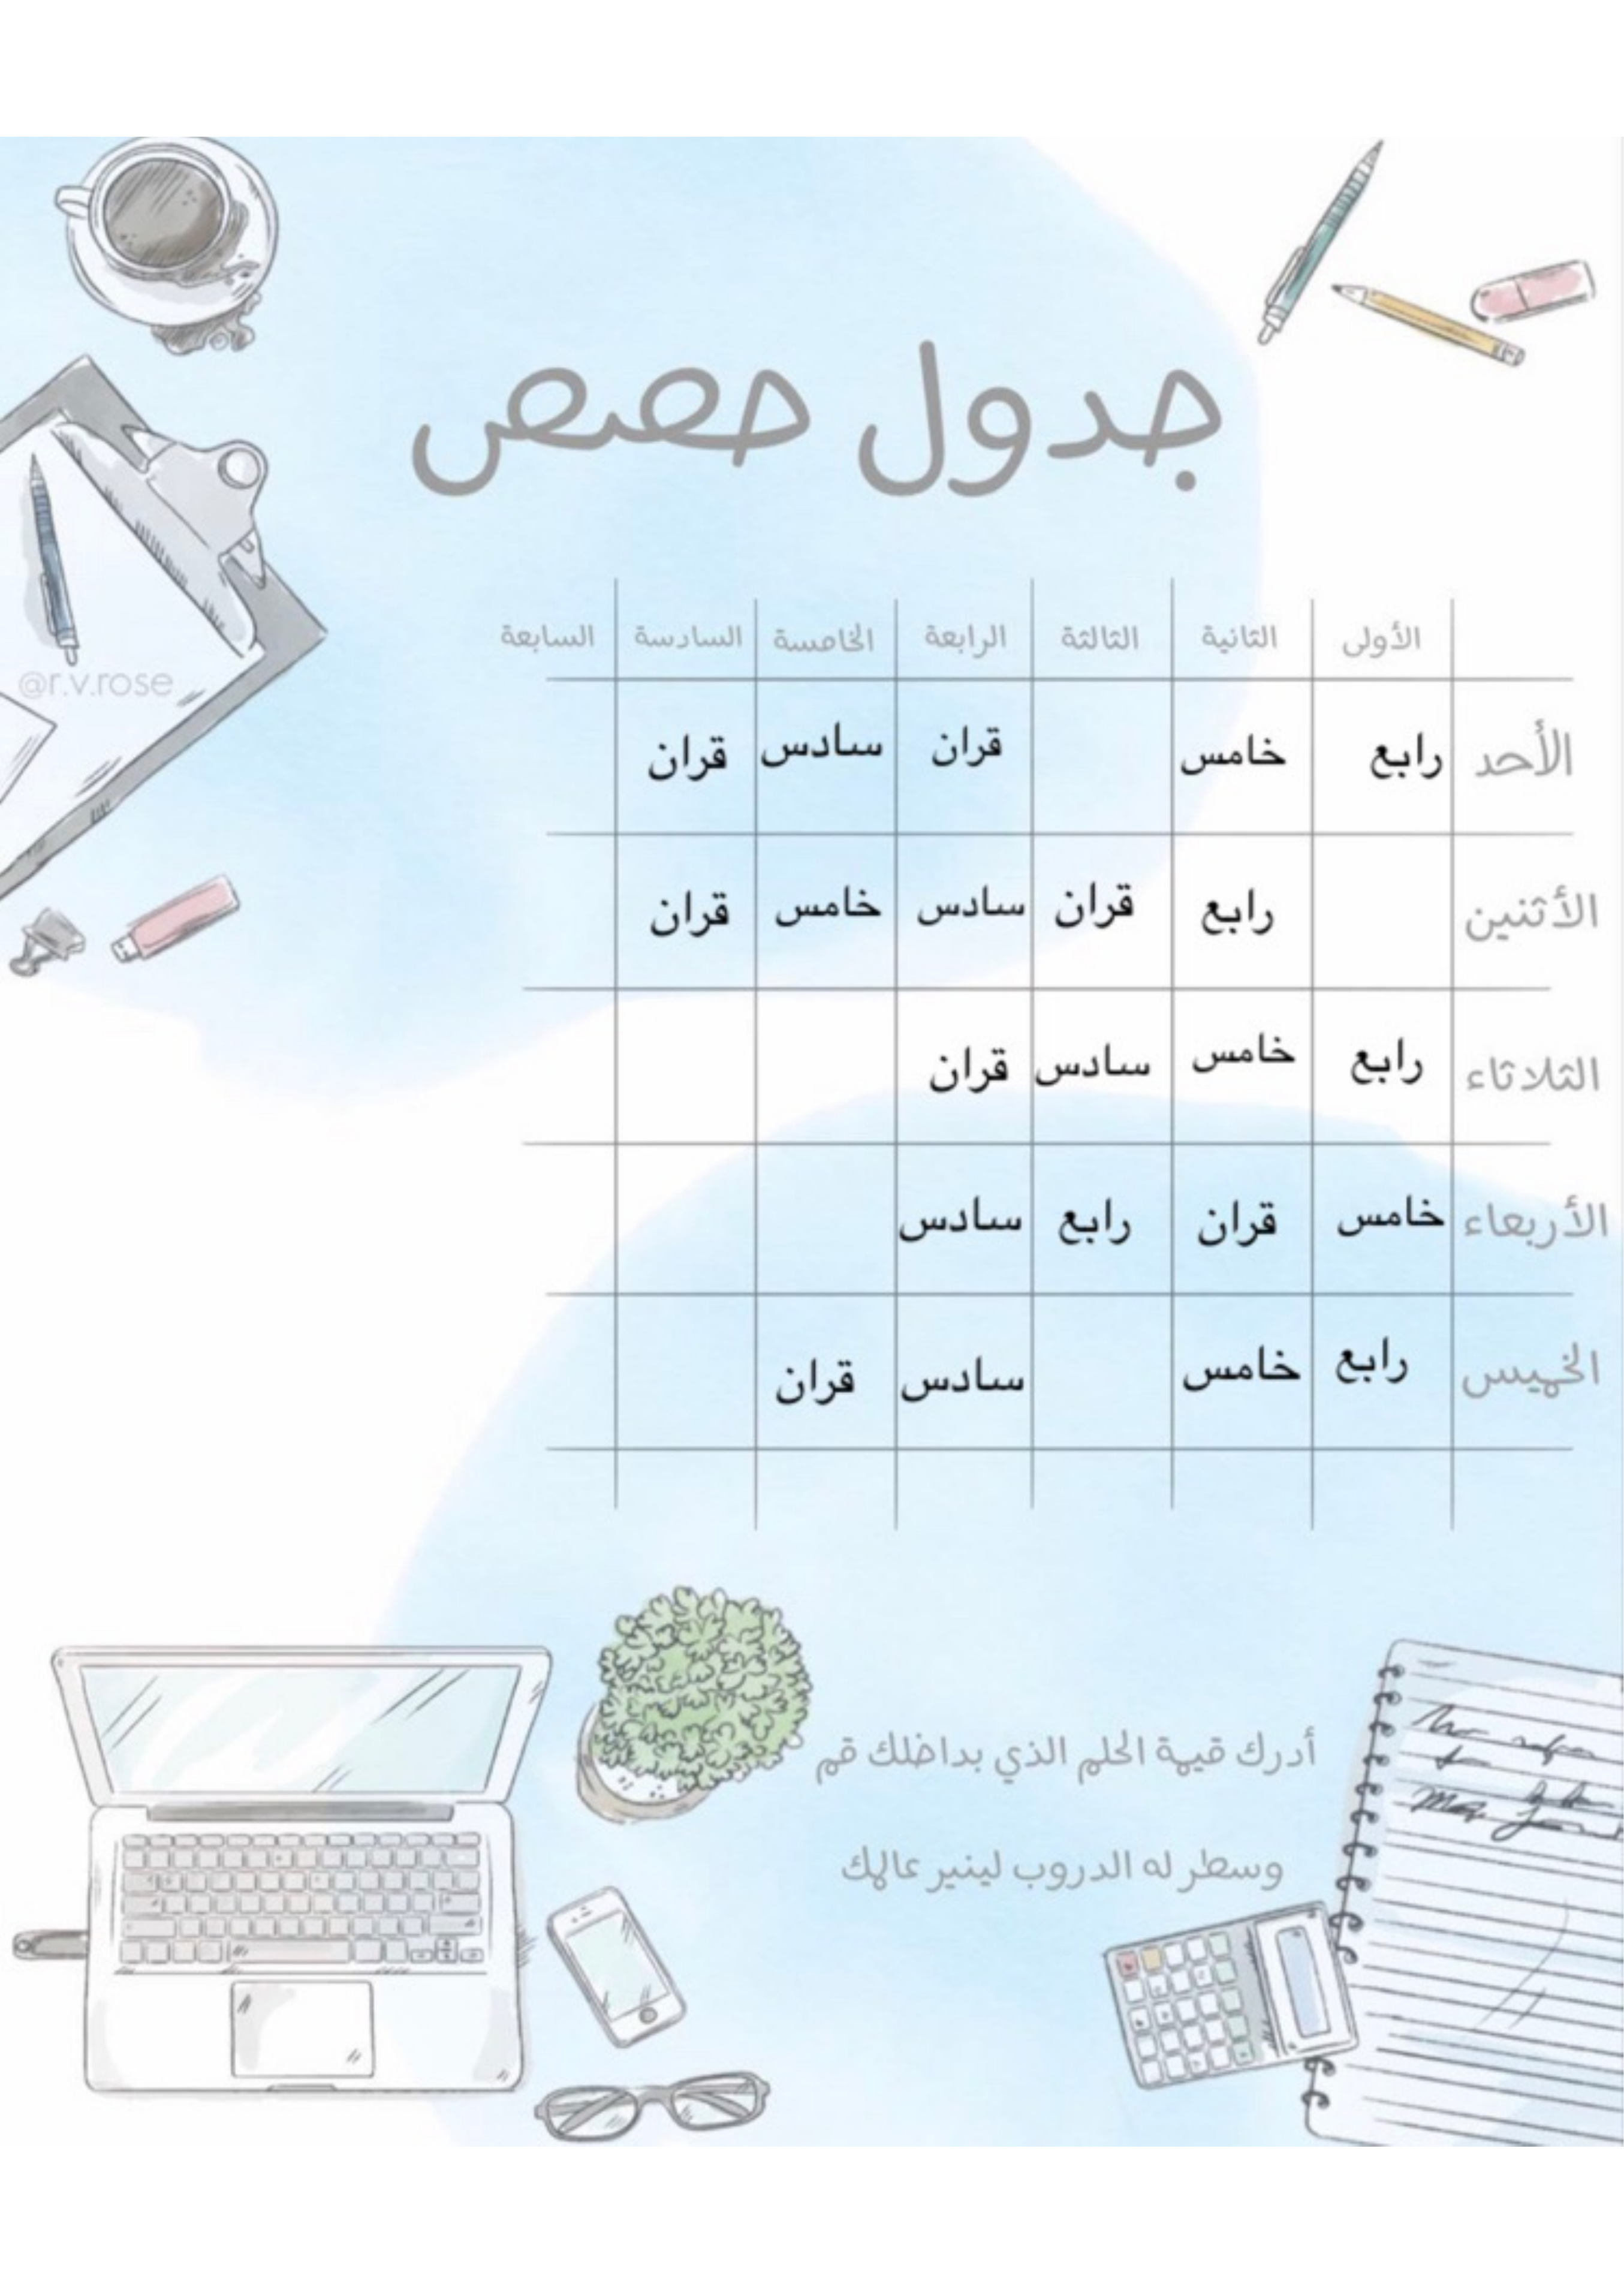 جدول حصص
الأولى الثانية الثالثة الرابعة الخامسة السادسة السابعة
الأحد رابع خامس قران سادس قران
الأثنين رابع قران سادس خامس قران
الثلاثاء رابع خامس سادس قران
الأربعاء خامس قران رابع سادس
الخميس رابع خامس سادس قران
@r.v.rose
أدرك قيمة الحلم الذي بداخلك قم
وسطر له الدروب لينير عالمك